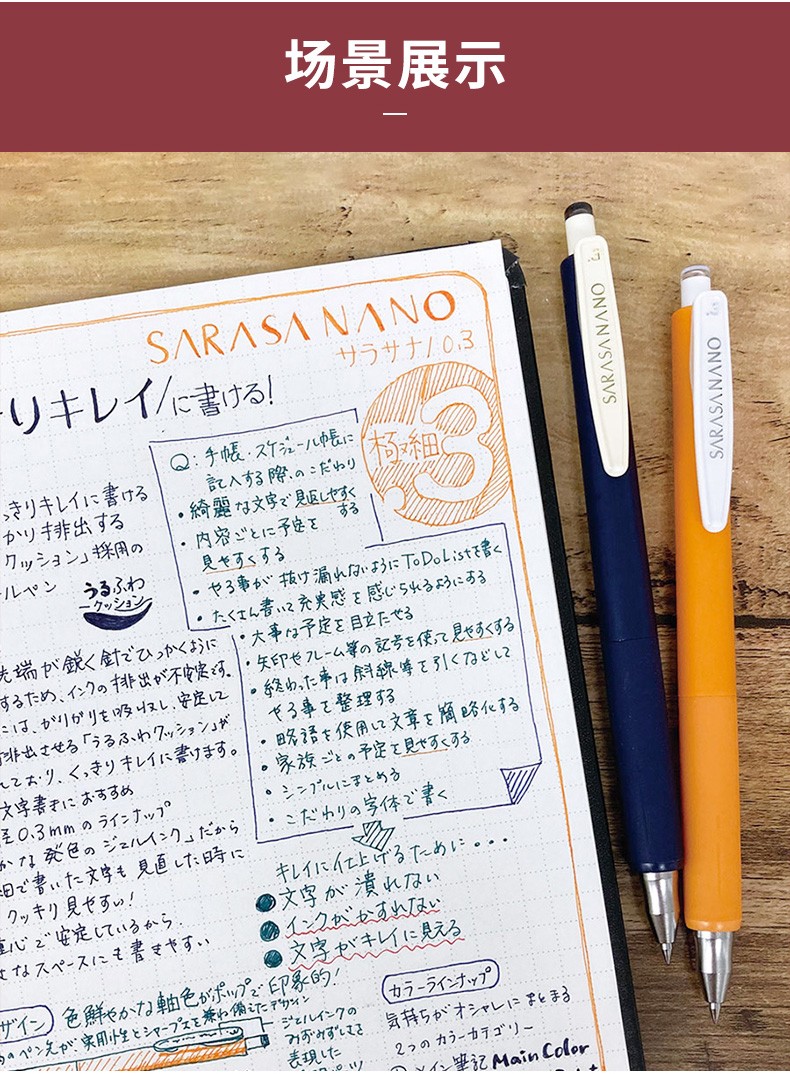 场景展示
SARASA NANO
サラサナノ 0.3
りキレイに書ける!
極細
3
Q: 手帳、スケジュール帳に
記入する際、のこだわり
・綺麗な文字で見返しやすくする
・内容ごとに予定を
見やすくする
・やる事が抜け漏れないようにToDoListを書く
・たくさん書いて充実感を感じられるようにする
・大事な予定を目立たせる
・矢印やフレーム等の記号を使って見やすくする
・終わった事は斜線等を引くなどして
やる事を整理する
・略語を使用して文章を簡略化する
・家族ごとの予定を見やすくする
・シンプルにまとめる
・こだわりの字体で書く
キレイに仕上げるために...
文字が潰れない
インクがかすれない
文字がキレイに見える
っきりキレイに書ける
かり排出する
クッション」採用の
ールペン
うるふわ
クッション
先端が鋭く針でひっかくように
するため、インクの排出が不安定です。
には、がりがりを吸収し、安定して
排出させる「うるふわクッション」が
しており、くっきりキレイに書けます。
文字書きにおすすめ
径0.3mmのラインナップ
かな発色のジェルインク」だから
細で書いた文字も見直した時に
クッキリ見やすい!
重心で安定しているから、
さなスペースにも書きやすい
ザイン
色鮮やかな軸色がポップで印象的!
のペン先が実用性とシャープさを兼ね備えたデザイン
ジェルインクの
みずみずしさを
表現した
カラーラインナップ
気持ちがオシャレにまとまる
2つのカラーカテゴリー
メイン筆記 Main Color
SARASA NANO
0.3
SARASA NANO